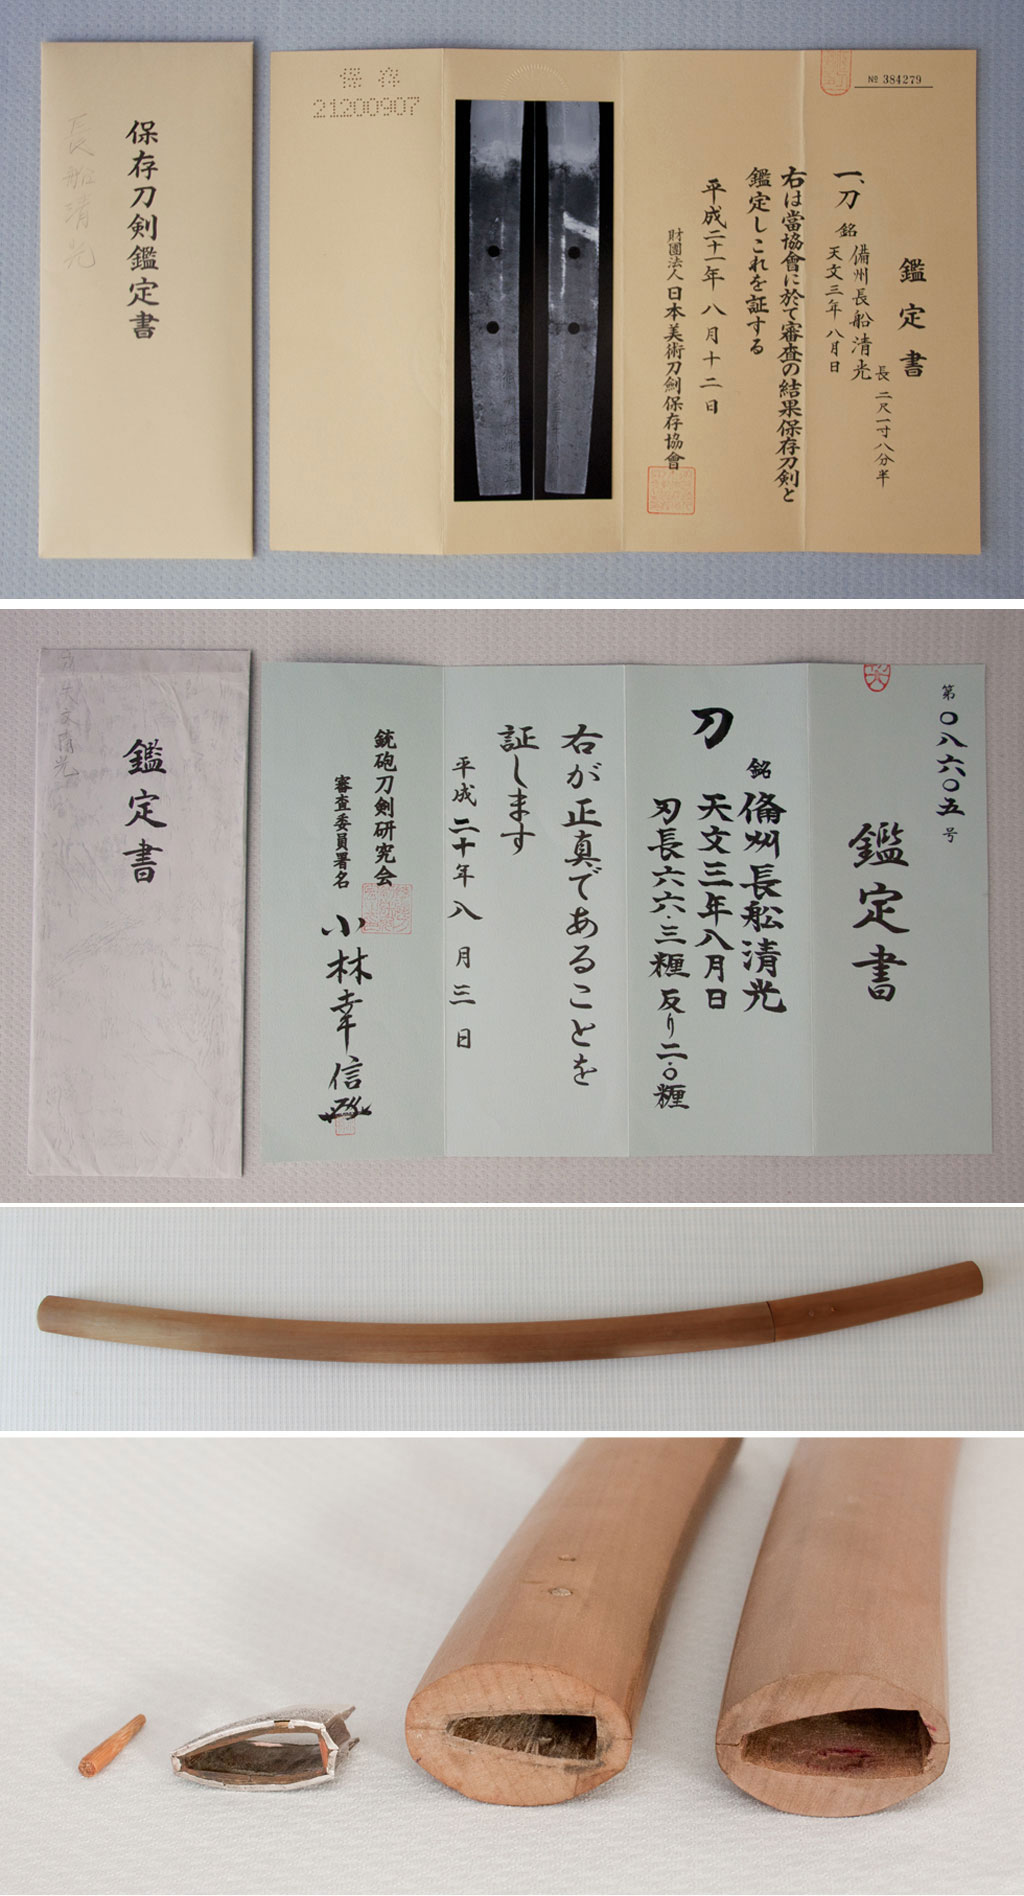 保存刀剣鑑定書
長船清光
№ 384279
鑑定書
一、刀 銘 備州長船清光
長 二尺一寸八分半
天文三年八月日
右は當協會に於て審査の結果保存刀剣と
鑑定しこれを証する
平成二十一年八月十二日
財團法人 日本美術刀劍保存協會
保存
21200907
鑑定書
第〇八六〇五号
鑑定書
刀 銘 備州長舩清光
天文三年八月日
刃長六六・三糎 反り二・〇糎
右が正真であることを
証します
平成二十年八月三日
銃砲刀剣研究会
審査委員署名
小林幸信